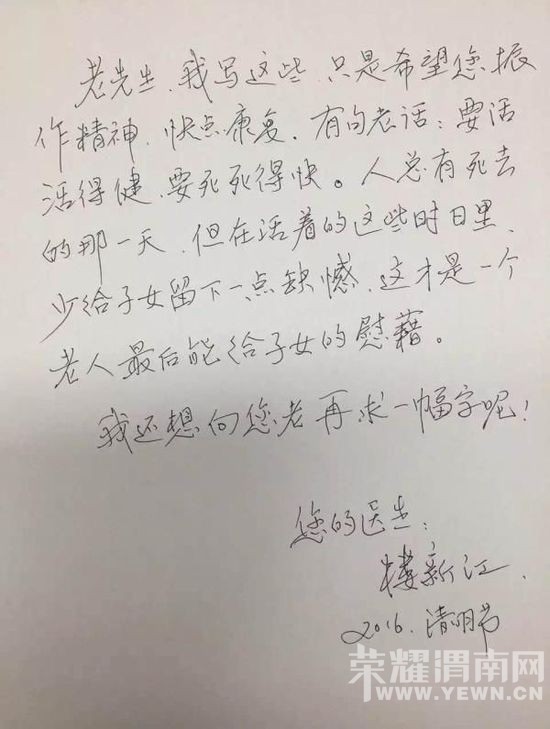 老先生、我写这些、只是希望您振
作精神、快点康复。有句老话：要活
活得健、要死死得快。人总有死去
的那一天、但在活着的这些时日里、
少给子女留下一点缺憾、这才是一个
老人最后能给子女的慰藉。
我还想向您老再求一幅字呢！
您的医生：
楼新江.
2016.清明节
荣耀渭南网
WWW.YEWN.CN